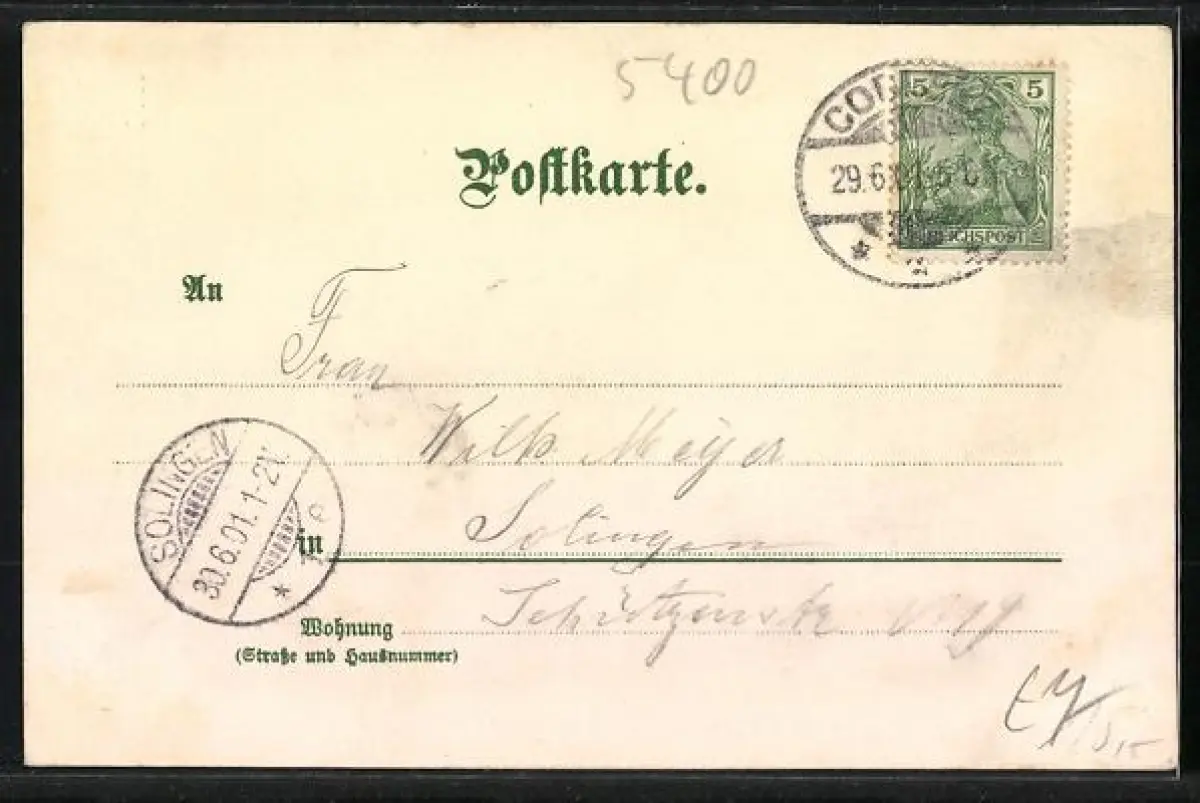 5400
5 5
REICHSPOST
29.6.01.5-
Postkarte.
An
Frau
Wilh. Meyer
SOLINGEN
30.6.01.1-2N.
in Solingen
Wohnung Schützenstr
(Straße und Hausnummer)